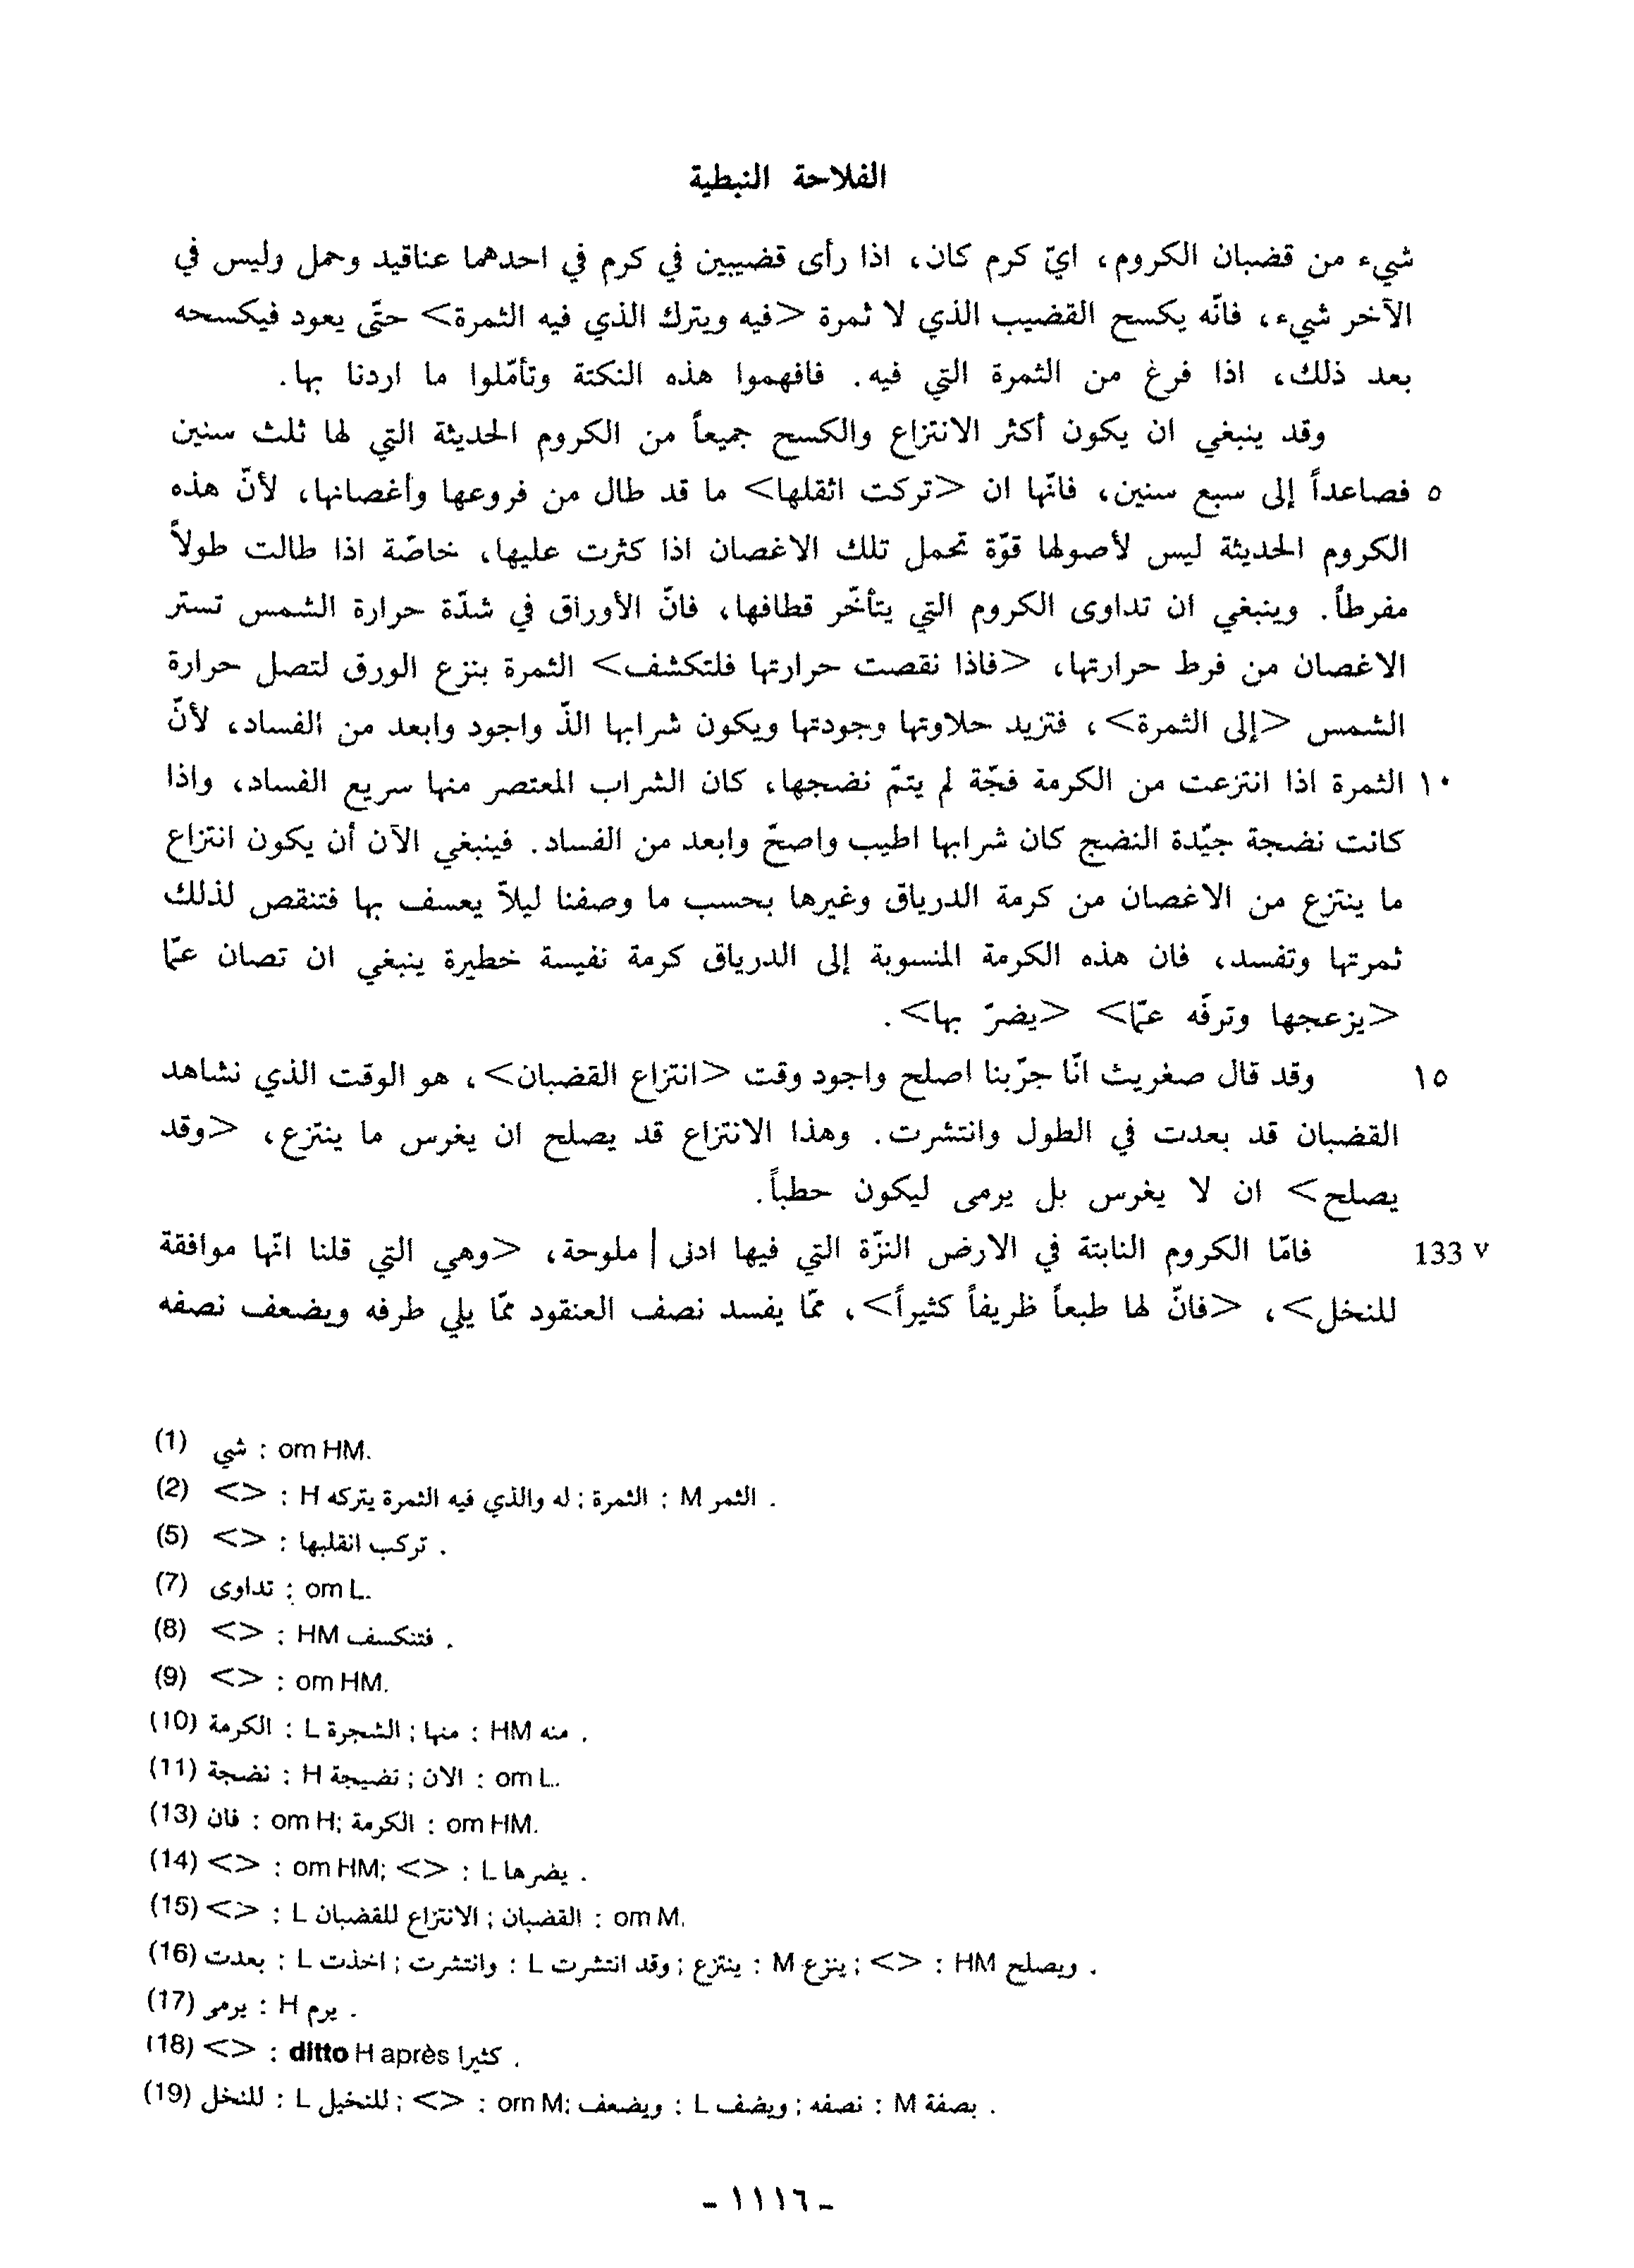 الفلاحة النبطية
شيء من قضبان الكروم، ايّ كرم كان، اذا رأى قضيبين في كرم في احدهما عناقيد وحمل وليس في
الآخر شيء، فانّه يكسح القضيب الذي لا ثمرة <فيه ويترك الذي فيه الثمرة> حتّى يعود فيكسحه
بعد ذلك، اذا فرغ من الثمرة التي فيه. فافهموا هذه النكتة وتأمّلوا ما اردنا بها.
وقد ينبغي ان يكون أكثر الانتزاع والكسح جميعاً من الكروم الحديثة التي لها ثلث سنين
٥ فصاعداً إلى سبع سنين، فانّها ان <تركت اثقلها> ما قد طال من فروعها وأغصانها، لأنّ هذه
الكروم الحديثة ليس لأصولها قوّة تحمل تلك الاغصان اذا كثرت عليها، خاصّة اذا طالت طولاً
مفرطاً. وينبغي ان تداوى الكروم التي يتأخّر قطافها، فانّ الأوراق في شدّة حرارة الشمس تستر
الاغصان من فرط حرارتها، <فاذا نقصت حرارتها فلتكشف> الثمرة بنزع الورق لتصل حرارة
الشمس <إلى الثمرة>، فتزيد حلاوتها وجودتها ويكون شرابها الذّ واجود وابعد من الفساد، لأنّ
١٠ الثمرة اذا انتزعت من الكرمة فجّة لم يتمّ نضجها، كان الشراب المعتصر منها سريع الفساد، واذا
كانت نضجة جيّدة النضج كان شرابها اطيب واصحّ وابعد من الفساد. فينبغي الآن أن يكون انتزاع
ما ينتزع من الاغصان من كرمة الدرياق وغيرها بحسب ما وصفنا ليلاّ يعسف بها فتنقص لذلك
ثمرتها وتفسد، فان هذه الكرمة المنسوبة إلى الدرياق كرمة نفيسة خطيرة ينبغي ان تصان عمّا
<يزعجها وترفّه عمّا> <يضرّ بها>.
١٥ وقد قال صغريث انّا جرّبنا اصلح واجود وقت <انتزاع القضبان>، هو الوقت الذي نشاهد
القضبان قد بعدت في الطول وانتشرت. وهذا الانتزاع قد يصلح ان يغرس ما ينتزع، <وقد
يصلح> ان لا يغرس بل يرمى ليكون حطباً.
133 v فامّا الكروم النابتة في الارض النزّة التي فيها ادنى | ملوحة، <وهي التي قلنا انّها موافقة
للنخل>، <فانّ لها طبعاً ظريفاً كثيراً>، ممّا يفسد نصف العنقود ممّا يلي طرفه ويضعف نصفه
(1) شي : om HM.
(2) <> : H له والذي فيه الثمرة يتركه ; الثمرة : M الثمر .
(5) <> : تركب انقلبها .
(7) تداوى : om L.
(8) <> : HM فتنكسف .
(9) <> : om HM.
(10) الكرمة : L الشجرة ; منها : HM منه .
(11) نضجة : H تضيجة ; الان : om L.
(13) فان : om H; الكرمة : om HM.
(14) <> : om HM; <> : L يضرها .
(15) <> : L الانتزاع للقضبان ; القضبان : om M.
(16) بعدت : L اخذت ; وانتشرت : L وقد انتشرت ; ينتزع : M ينزع ; <> : HM ويصلح .
(17) يرمى : H يرم .
(18) <> : ditto H après كثيرا .
(19) للنخل : L للنخيل ; <> : om M; ويضعف : L ويضف ; نصفه : M بصفة .
- ١١١٦ -